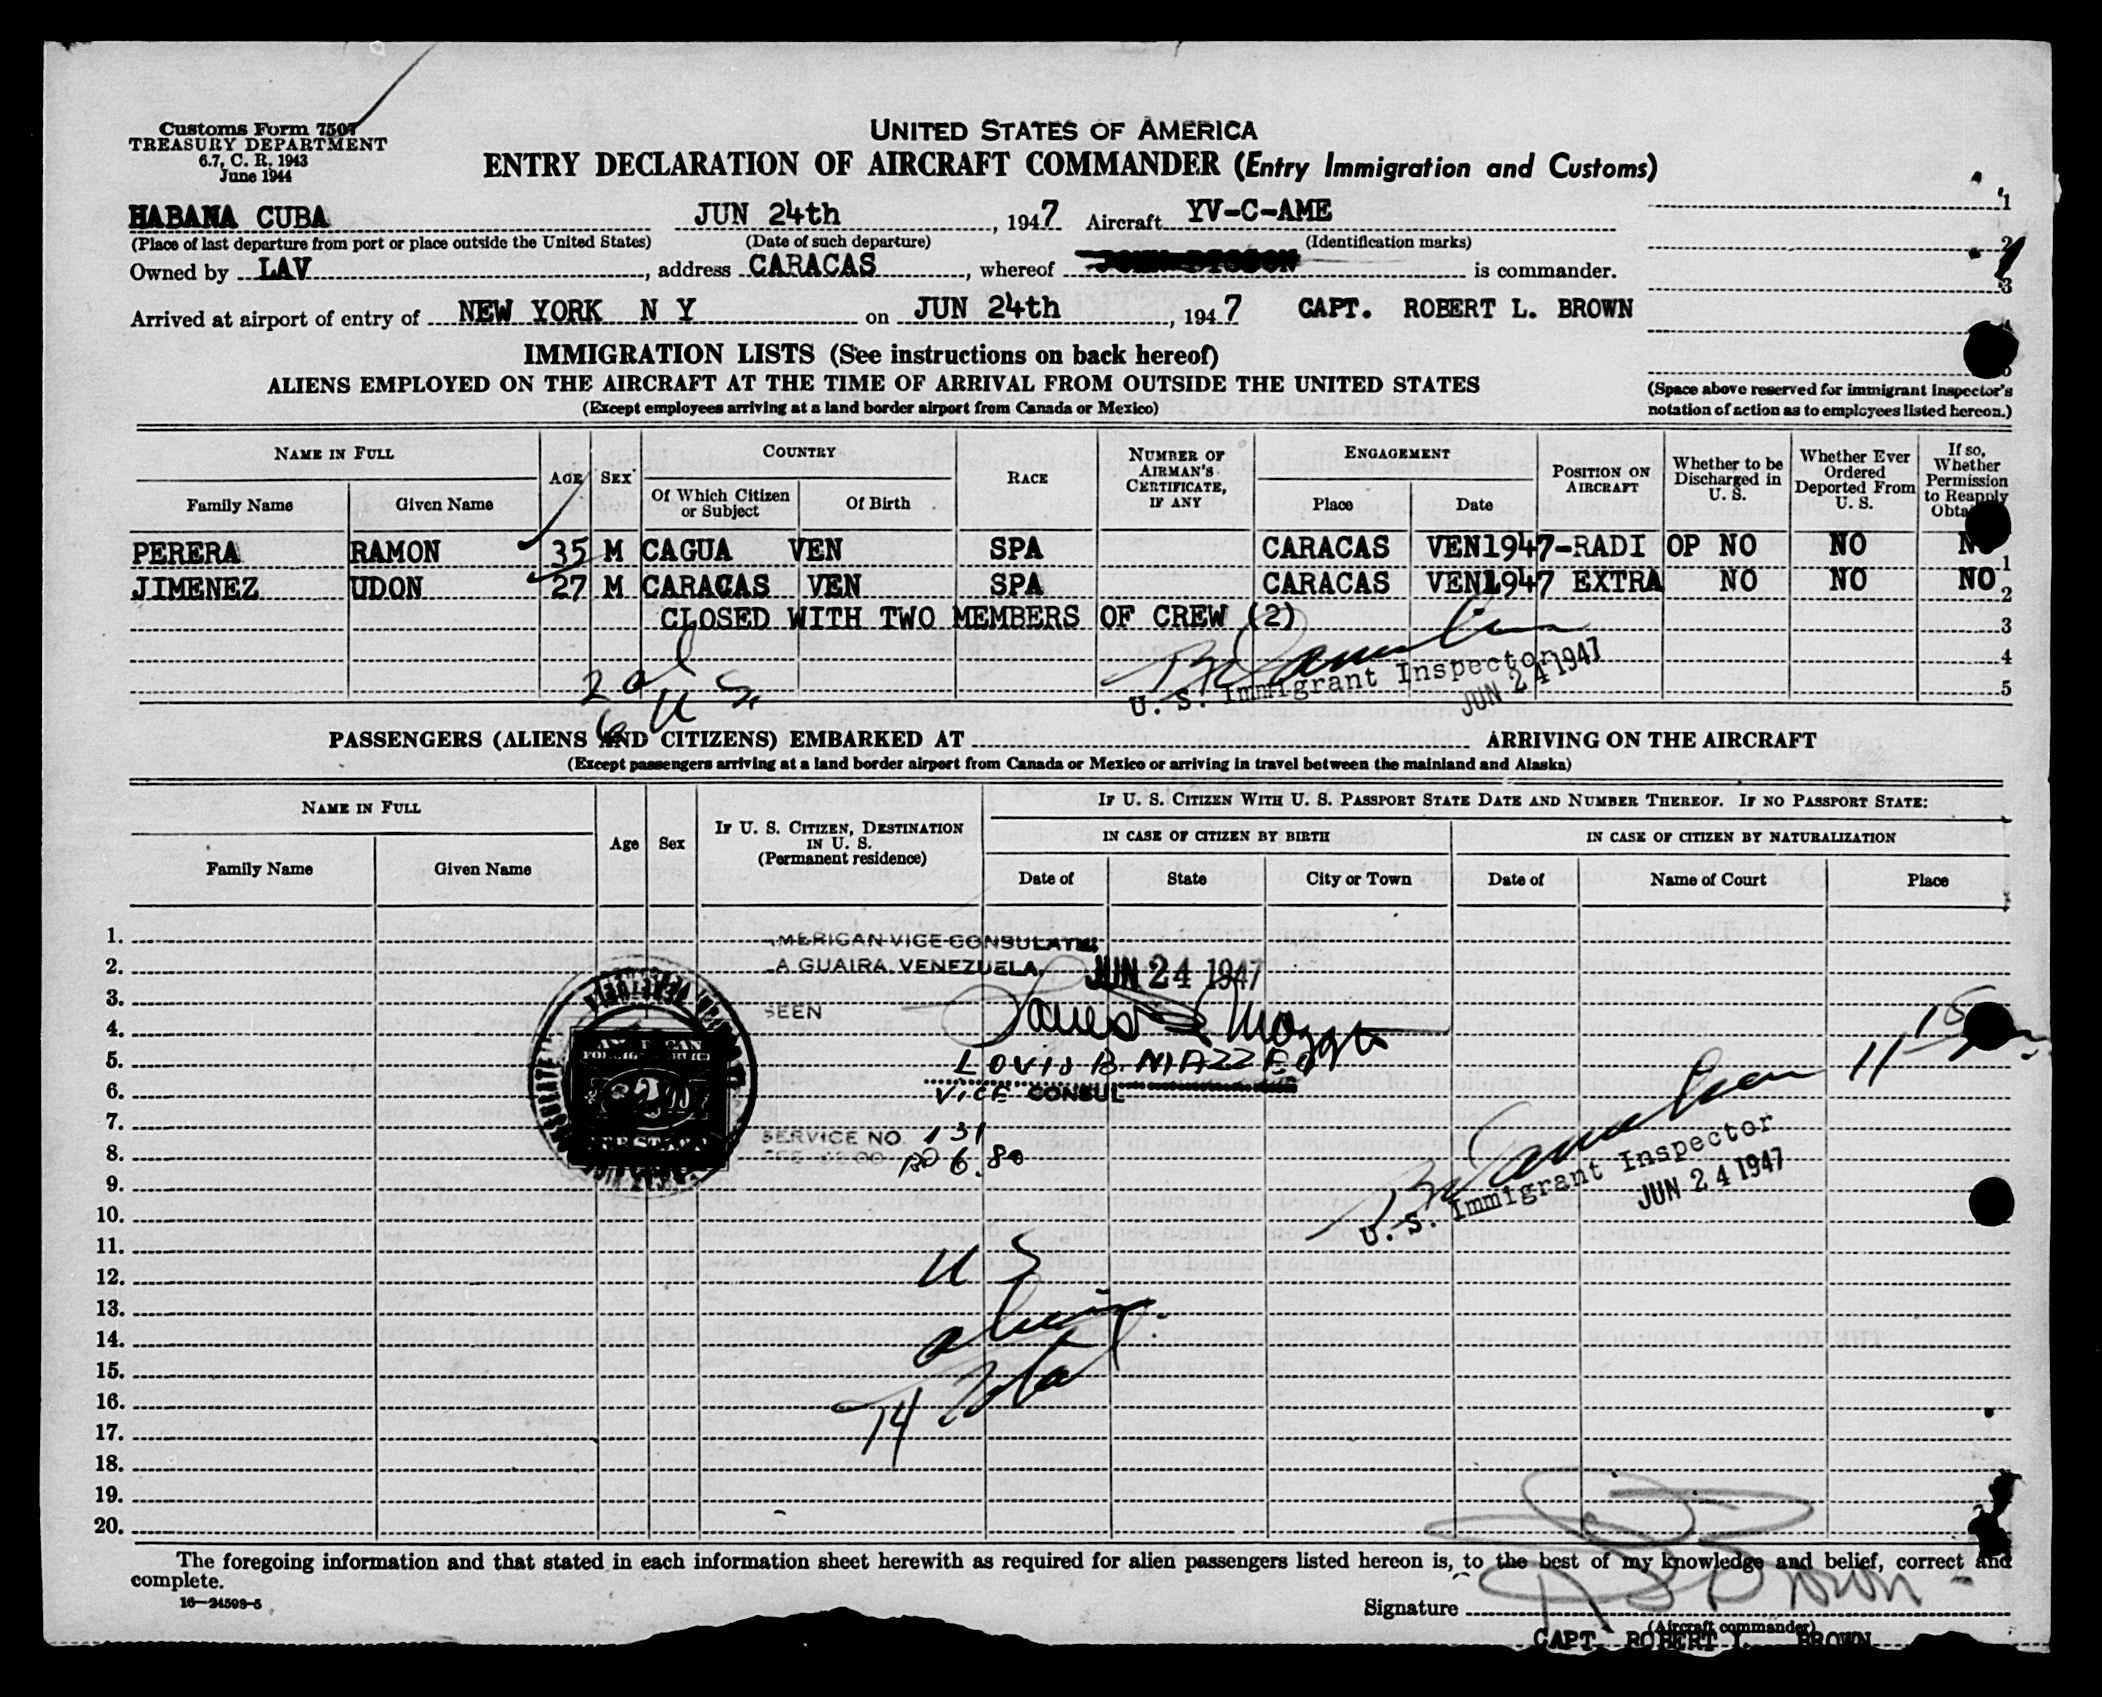 Customs Form 7507
TREASURY DEPARTMENT
6.7, C. R. 1943
June 1944
UNITED STATES OF AMERICA
ENTRY DECLARATION OF AIRCRAFT COMMANDER (Entry Immigration and Customs)
HABANA CUBA JUN 24th, 1947 Aircraft YV-C-AME
(Place of last departure from port or place outside the United States) (Date of such departure) (Identification marks)
Owned by LAV, address CARACAS, whereof is commander.
Arrived at airport of entry of NEW YORK N Y on JUN 24th, 1947 CAPT. ROBERT L. BROWN
1
2
3
IMMIGRATION LISTS (See instructions on back hereof)
ALIENS EMPLOYED ON THE AIRCRAFT AT THE TIME OF ARRIVAL FROM OUTSIDE THE UNITED STATES
(Except employees arriving at a land border airport from Canada or Mexico)
(Space above reserved for immigrant inspector's
notation of action as to employees listed hereon.)
NAME IN FULL
Family Name Given Name
AGE
SEX
COUNTRY
Of Which Citizen
or Subject
Of Birth
RACE
NUMBER OF
AIRMAN'S
CERTIFICATE,
IF ANY
ENGAGEMENT
Place Date
POSITION ON
AIRCRAFT
Whether to be
Discharged in
U. S.
Whether Ever
Ordered
Deported From
U. S.
If so,
Whether
Permission
to Reapply
PERERA RAMON 35 M CAGUA VEN SPA CARACAS VEN1947-RADI OP NO NO NO 1
JIMENEZ UDON 27 M CARACAS VEN SPA CARACAS VEN1947 EXTRA NO NO NO 2
CLOSED WITH TWO MEMBERS OF CREW (2) 3
4
5
2 al
6 U S.
U. S. Immigrant Inspector
JUN 24 1947
PASSENGERS (ALIENS AND CITIZENS) EMBARKED AT ARRIVING ON THE AIRCRAFT
(Except passengers arriving at a land border airport from Canada or Mexico or arriving in travel between the mainland and Alaska)
NAME IN FULL
Family Name Given Name
Age
Sex
IF U. S. CITIZEN, DESTINATION
IN U. S.
(Permanent residence)
IF U. S. CITIZEN WITH U. S. PASSPORT STATE DATE AND NUMBER THEREOF. IF NO PASSPORT STATE:
IN CASE OF CITIZEN BY BIRTH IN CASE OF CITIZEN BY NATURALIZATION
Date of State City or Town Date of Name of Court Place
1.
2.
3.
4.
5.
6.
7.
8.
9.
10.
11.
12.
13.
14.
15.
16.
17.
18.
19.
20.
AMERICAN VICE CONSULATE
LA GUAIRA, VENEZUELA, JUN 24 1947
SEEN
VICE CONSUL
SERVICE NO. 131
6.80
U. S. Immigrant Inspector
JUN 24 1947
11
15
U S
aliens
14 Total
The foregoing information and that stated in each information sheet herewith as required for alien passengers listed hereon is, to the best of my knowledge and belief, correct and
complete.
16—24598-5
Signature
(Aircraft commander)
CAPT. ROBERT L. BROWN